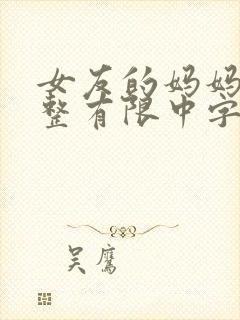 女友的妈妈
整有限中字
吴鹰